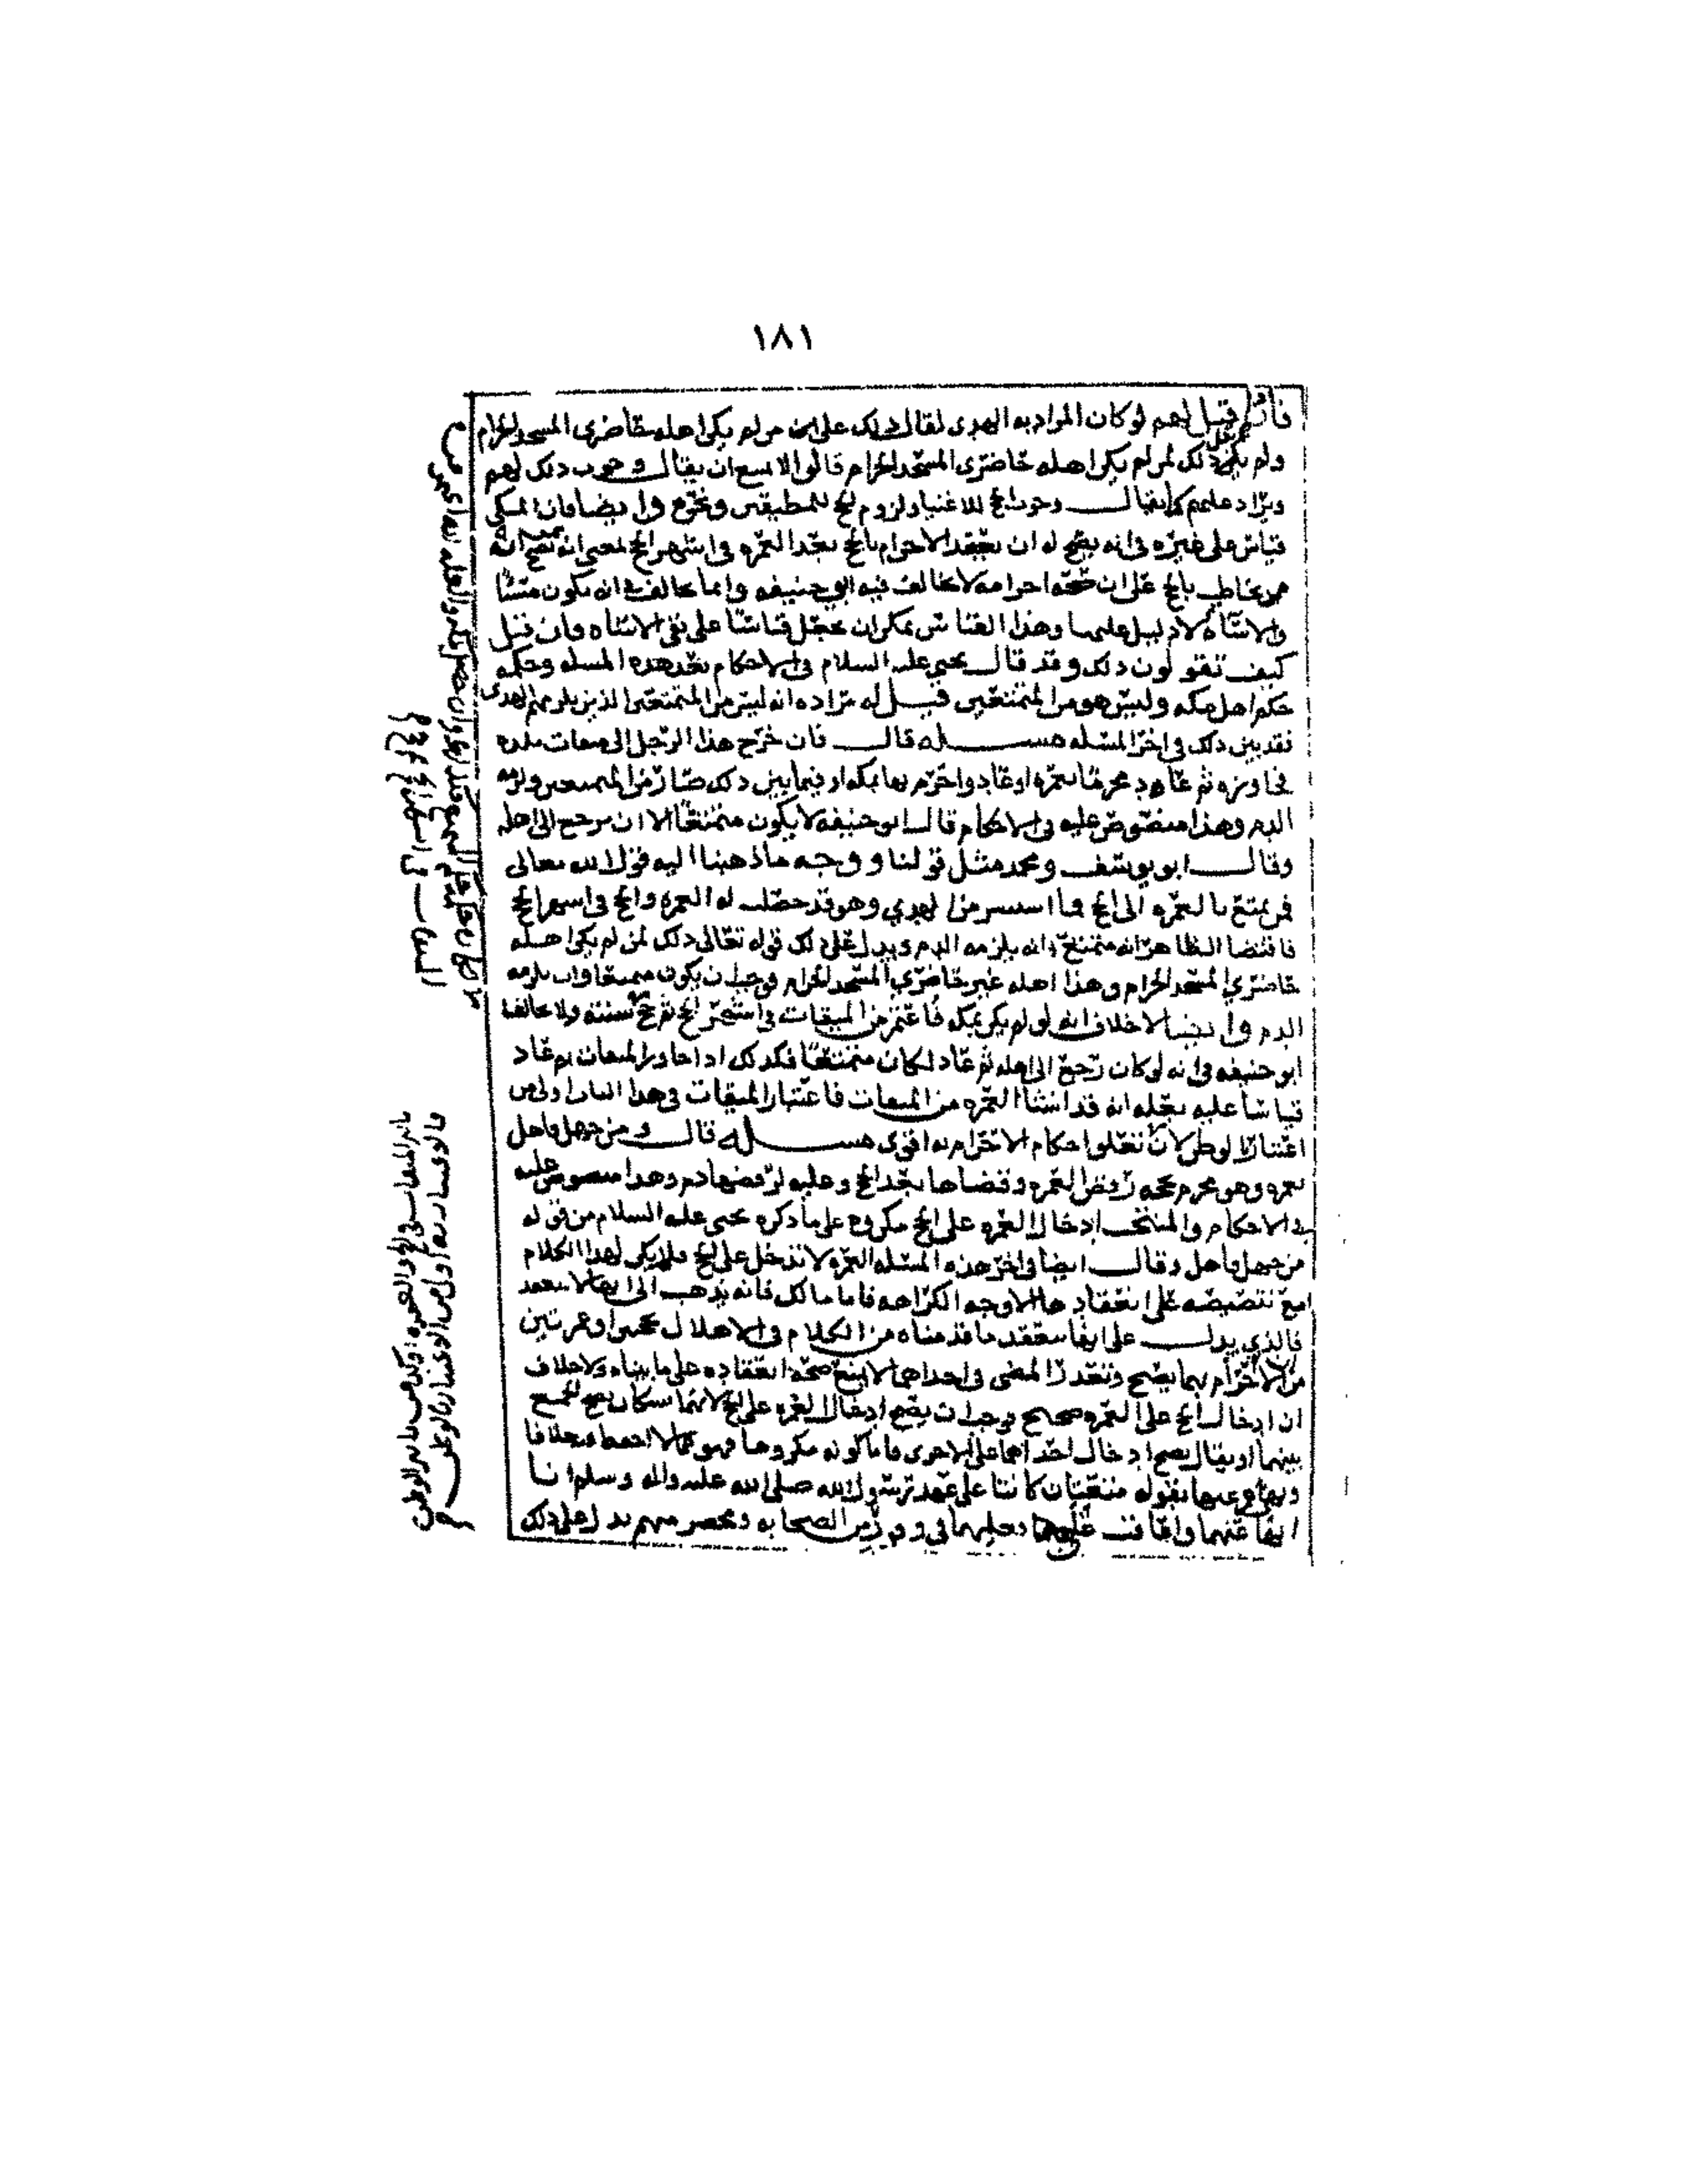 ١٨١
فان قيل لهم لو كان المراد به الهدى لقال ذلك على من لم يكن اهله حاضرى المسجد الحرام
ولم يقل ذلك لمن لم يكن اهله حاضرى المسجد الحرام قالوا لا يمتنع ان يقال وجوب ذلك لهم
ويراد عليهم كما يقال وجوب الحج للاغنياء ولزوم الحج للمطيقين ونحوه وايضا فان المكى
قياس على غيره فى انه يصح له ان يعقد الاحرام بالحج بعد العمره فى اشهر الحج لمعنى انه
ممن يخاطب بالحج على ان صحة احرامه لا يخالف فيه ابو حنيفه وانما يخالف فى ان يكون مسئا
والاساة لا دليل عليها وهذا القياس يمكن ان يجعل قياسا على نفى الاساه فان قيل
كيف تقولون ذلك وقد قال يحيى عليه السلام فى الاحكام بعد هذه المسله وحكمه
حكم اهل مكه وليس هو من المتمتعين قيل له مراده انه ليس من المتمتعين الذين يلزمهم الهدى
فقد بين ذلك فى اخر المسله مسئله قال فان خرج هذا الرجل الى ميقات بلده
فجاوزه ثم عاد محرما بعمره او عاد واحرم بها بمكه او فيما بين ذلك صار من المتمتعين ولزمه
الدم وهذا منصوص عليه فى الاحكام قال ابو حنيفه لا يكون متمتعا الا ان يرجع الى اهله
وقال ابو يوسف ومحمد مثل قولنا ووجه ما ذهبنا اليه قول الله تعالى
فمن تمتع بالعمره الى الحج فما استيسر من الهدي وهو قد حصلت له العمره والحج فى اشهر الحج
فاقتضا الظاهر انه متمتع وانه يلزمه الدم ويدل على ذلك قوله تعالى ذلك لمن لم يكن اهله
حاضري المسجد الحرام وهذا اهله غير حاضري المسجد الحرام فوجب ان يكون متمتعا وان يلزمه
الدم وايضا لا خلاف انه لو لم يكن بمكه فاعتمر من الميقات فى اشهر الحج ثم حج من سنته ولا يخالفنا
ابو حنيفه فى انه لو كان رجع الى اهله ثم عاد لكان متمتعا فكذلك اذا جاوز الميقات ثم عاد
قياسا عليه بعله انه قد انشا العمره من الميقات فاعتبار الميقات فى هذا الباب اولى من
اعتبار الوطن لان تعلق احكام الاحرام به اقوى مسئله قال ومن جهل فاهل
بعمره وهو محرم بحجه رفض العمره وقضاها بعد الحج وعليه لرفضها دم وهذا منصوص عليه
فى الاحكام والمنتخب ادخال العمره على الحج مكروه على ما ذكره يحيى عليه السلام من قوله
من جهل فاهل وقال ايضا فى اخر هذه المسئله العمره لا تدخل على الحج فلم يكن لهذا الكلام
مع تنصيصه على انعقادها الا وجه الكراهه فاما مالك فانه يذهب الى انها لا تنعقد
فالذي يدل على انها تنعقد ما قدمناه من الكلام فى الاهلال بحجتين او عمرتين
من الاحرام بهما يصح وتعذر المضى فى احداهما لا يمنع صحة انعقاده على ما بيناه ولا خلاف
ان ادخال الحج على العمره صحيح فوجب ان يصح ادخال العمره على الحج لانهما نسكان يصح الجمع
بينهما او يقال يصح ادخال احداهما على الاخرى فاما كونه مكروها فهو مما لا احفظ فيه خلافا
ونهى عمر عنها بقوله متعتان كانتا على عهد رسول الله صلى الله عليه واله وسلم انا
انها عنهما واعاقب عليهما فى زمن الصحابه وبمحضر منهم يدل على ذلك